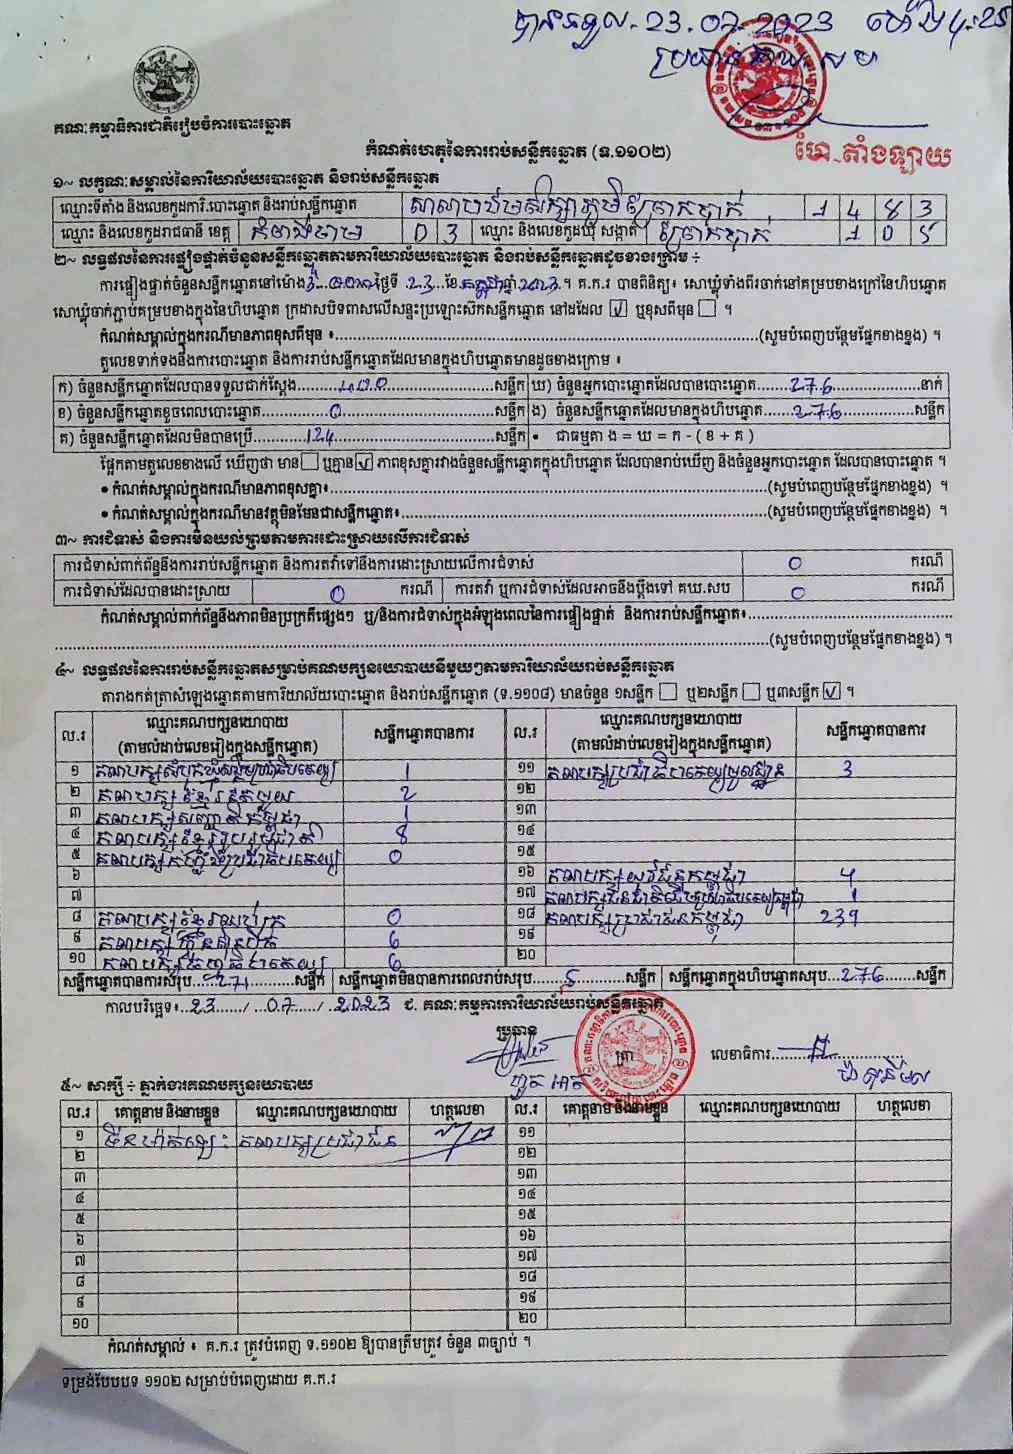 បានទទួល.23.07.2023 ម៉ោង 4:25
គណៈកម្មាធិការជាតិរៀបចំការបោះឆ្នោត
កំណត់ហេតុនៃការរាប់សន្លឹកឆ្នោត (ទ.១១០២)
ហែ.តាំងឡាយ
១~ លក្ខណៈសម្គាល់នៃការិយាល័យបោះឆ្នោត និងរាប់សន្លឹកឆ្នោត
ឈ្មោះទីតាំង និងលេខកូដការិ.បោះឆ្នោត និងរាប់សន្លឹកឆ្នោត សាលាបឋមសិក្សាភូមិព្រែកក្បាក់ 1 4 8 3
ឈ្មោះ និងលេខកូដរាជធានី ខេត្ត កំពង់ចាម 0 3 ឈ្មោះ និងលេខកូដឃុំ សង្កាត់ 1 0 5
២~ លទ្ធផលនៃការផ្ទៀងផ្ទាត់ចំនួនសន្លឹកឆ្នោតតាមការិយាល័យបោះឆ្នោត និងរាប់សន្លឹកឆ្នោតដូចខាងក្រោម ÷
ការផ្ទៀងផ្ទាត់ចំនួនសន្លឹកឆ្នោតនៅម៉ោង ថ្ងៃទី 23 ខែ កក្កដា ឆ្នាំ 2023 ។ គ.ក.រ បានពិនិត្យ៖ សោឃ្លុំទាំងពីរចាក់នៅគម្របខាងក្រៅនៃហិបឆ្នោត
សោឃ្លុំចាក់ភ្ជាប់គម្របខាងក្នុងនៃហិបឆ្នោត ក្រដាសបិទពាសលើសន្ទះប្រឡោះស៊កសន្លឹកឆ្នោត នៅដដែល ☑ ឬខុសពីមុន ☐ ។
កំណត់សម្គាល់ក្នុងករណីមានភាពខុសពីមុន ៖ (សូមបំពេញបន្ថែមផ្នែកខាងខ្នង) ។
តួលេខទាក់ទងនឹងការបោះឆ្នោត និងការរាប់សន្លឹកឆ្នោតដែលមានក្នុងហិបឆ្នោតមានដូចខាងក្រោម ៖
ក) ចំនួនសន្លឹកឆ្នោតដែលបានទទួលជាក់ស្តែង 400 សន្លឹក ឃ) ចំនួនអ្នកបោះឆ្នោតដែលបានបោះឆ្នោត 276 នាក់
ខ) ចំនួនសន្លឹកឆ្នោតខូចពេលបោះឆ្នោត 0 សន្លឹក ង) ចំនួនសន្លឹកឆ្នោតដែលមានក្នុងហិបឆ្នោត 276 សន្លឹក
គ) ចំនួនសន្លឹកឆ្នោតដែលមិនបានប្រើ 124 សន្លឹក • ជាធម្មតា ង = ឃ = ក - ( ខ + គ )
ផ្អែកតាមតួលេខខាងលើ ឃើញថា មាន ☐ ឬគ្មាន ☑ ភាពខុសគ្នារវាងចំនួនសន្លឹកឆ្នោតក្នុងហិបឆ្នោត ដែលបានរាប់ឃើញ និងចំនួនអ្នកបោះឆ្នោត ដែលបានបោះឆ្នោត ។
• កំណត់សម្គាល់ក្នុងករណីមានភាពខុសគ្នា៖ (សូមបំពេញបន្ថែមផ្នែកខាងខ្នង) ។
• កំណត់សម្គាល់ក្នុងករណីមានវត្ថុមិនមែនជាសន្លឹកឆ្នោត៖ (សូមបំពេញបន្ថែមផ្នែកខាងខ្នង) ។
៣~ ការជំទាស់ និងការមិនយល់ព្រមតាមការដោះស្រាយលើការជំទាស់
ការជំទាស់ពាក់ព័ន្ធនឹងការរាប់សន្លឹកឆ្នោត និងការតវ៉ាទៅនឹងការដោះស្រាយលើការជំទាស់ 0 ករណី
ការជំទាស់ដែលបានដោះស្រាយ 0 ករណី ការតវ៉ា ឬការជំទាស់ដែលអាចនឹងប្តឹងទៅ គឃ.សប 0 ករណី
កំណត់សម្គាល់ពាក់ព័ន្ធនឹងភាពមិនប្រក្រតីផ្សេងៗ ឬ/និងការជំទាស់ក្នុងអំឡុងពេលនៃការផ្ទៀងផ្ទាត់ និងការរាប់សន្លឹកឆ្នោត៖
(សូមបំពេញបន្ថែមផ្នែកខាងខ្នង) ។
៤~ លទ្ធផលនៃការរាប់សន្លឹកឆ្នោតសម្រាប់គណបក្សនយោបាយនីមួយៗតាមការិយាល័យរាប់សន្លឹកឆ្នោត
តារាងកត់ត្រាសំឡេងឆ្នោតតាមការិយាល័យបោះឆ្នោត និងរាប់សន្លឹកឆ្នោត (ទ.១១០៨) មានចំនួន ១សន្លឹក ☐ ឬ២សន្លឹក ☐ ឬ៣សន្លឹក ☑ ។
ល.រ ឈ្មោះគណបក្សនយោបាយ (តាមលំដាប់លេខរៀងក្នុងសន្លឹកឆ្នោត) សន្លឹកឆ្នោតបានការ ល.រ ឈ្មោះគណបក្សនយោបាយ (តាមលំដាប់លេខរៀងក្នុងសន្លឹកឆ្នោត) សន្លឹកឆ្នោតបានការ
១ គណបក្សសំបុកឃ្មុំសង្គមប្រជាធិបតេយ្យ 1 ១១ គណបក្សប្រជាធិបតេយ្យមូលដ្ឋាន 3
២ គណបក្សខ្មែររួបរួម 2 ១២
៣ គណបក្សសញ្ជាតិកម្ពុជា 1 ១៣
៤ គណបក្សខ្មែររួបរួមជាតិ 8 ១៤
៥ គណបក្សកម្លាំងប្រជាធិបតេយ្យ 0 ១៥
៦ ១៦ គណបក្សយុវជនកម្ពុជា 4
៧ ១៧ គណបក្សជនជាតិដើមប្រជាធិបតេយ្យកម្ពុជា 1
៨ គណបក្សខ្មែរអភិរក្ស 0 ១៨ គណបក្សប្រជាជនកម្ពុជា 239
៩ គណបក្សហ្វ៊ុនស៊ិនប៉ិច 6 ១៩
១០ គណបក្សធម្មាធិបតេយ្យ 6 ២០
សន្លឹកឆ្នោតបានការសរុប 271 សន្លឹក សន្លឹកឆ្នោតមិនបានការពេលរាប់សរុប 5 សន្លឹក សន្លឹកឆ្នោតក្នុងហិបឆ្នោតសរុប 276 សន្លឹក
កាលបរិច្ឆេទ៖ 23 / 07 / 2023 ជ. គណៈកម្មការការិយាល័យរាប់សន្លឹកឆ្នោត
ប្រធាន ត្រា លេខាធិការ
៥~ សាក្សី ÷ ភ្នាក់ងារគណបក្សនយោបាយ
ល.រ គោត្តនាម និងនាមខ្លួន ឈ្មោះគណបក្សនយោបាយ ហត្ថលេខា ល.រ គោត្តនាម និងនាមខ្លួន ឈ្មោះគណបក្សនយោបាយ ហត្ថលេខា
១ គណបក្សប្រជាជន ១១
២ ១២
៣ ១៣
៤ ១៤
៥ ១៥
៦ ១៦
៧ ១៧
៨ ១៨
៩ ១៩
១០ ២០
កំណត់សម្គាល់ ៖ គ.ក.រ ត្រូវបំពេញ ទ.១១០២ ឱ្យបានត្រឹមត្រូវ ចំនួន ៣ច្បាប់ ។
ទម្រង់បែបបទ ១១០២ សម្រាប់បំពេញដោយ គ.ក.រ